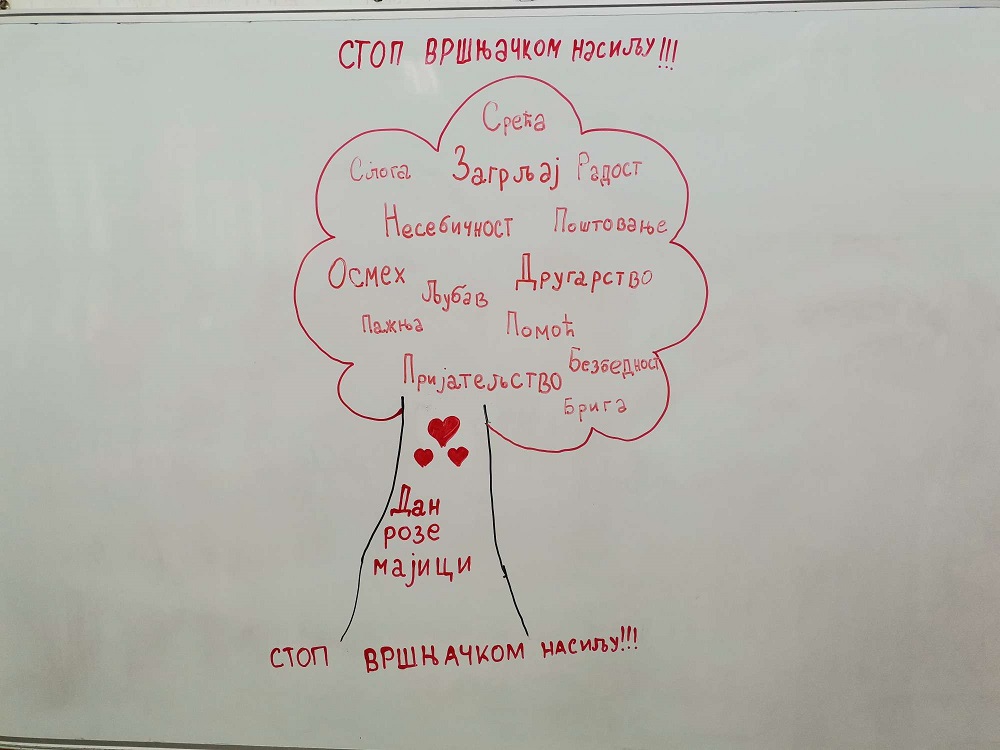 СТОП ВРШЊАЧКОМ НАСИЉУ!!!
Срећа
Слога Загрљај Радост
Несебичност Поштовање
Осмех Љубав Другарство
Пажња Помоћ
Пријатељство Безбедност
Брига
Дан
розе
мајици
СТОП ВРШЊАЧКОМ НАСИЉУ!!!